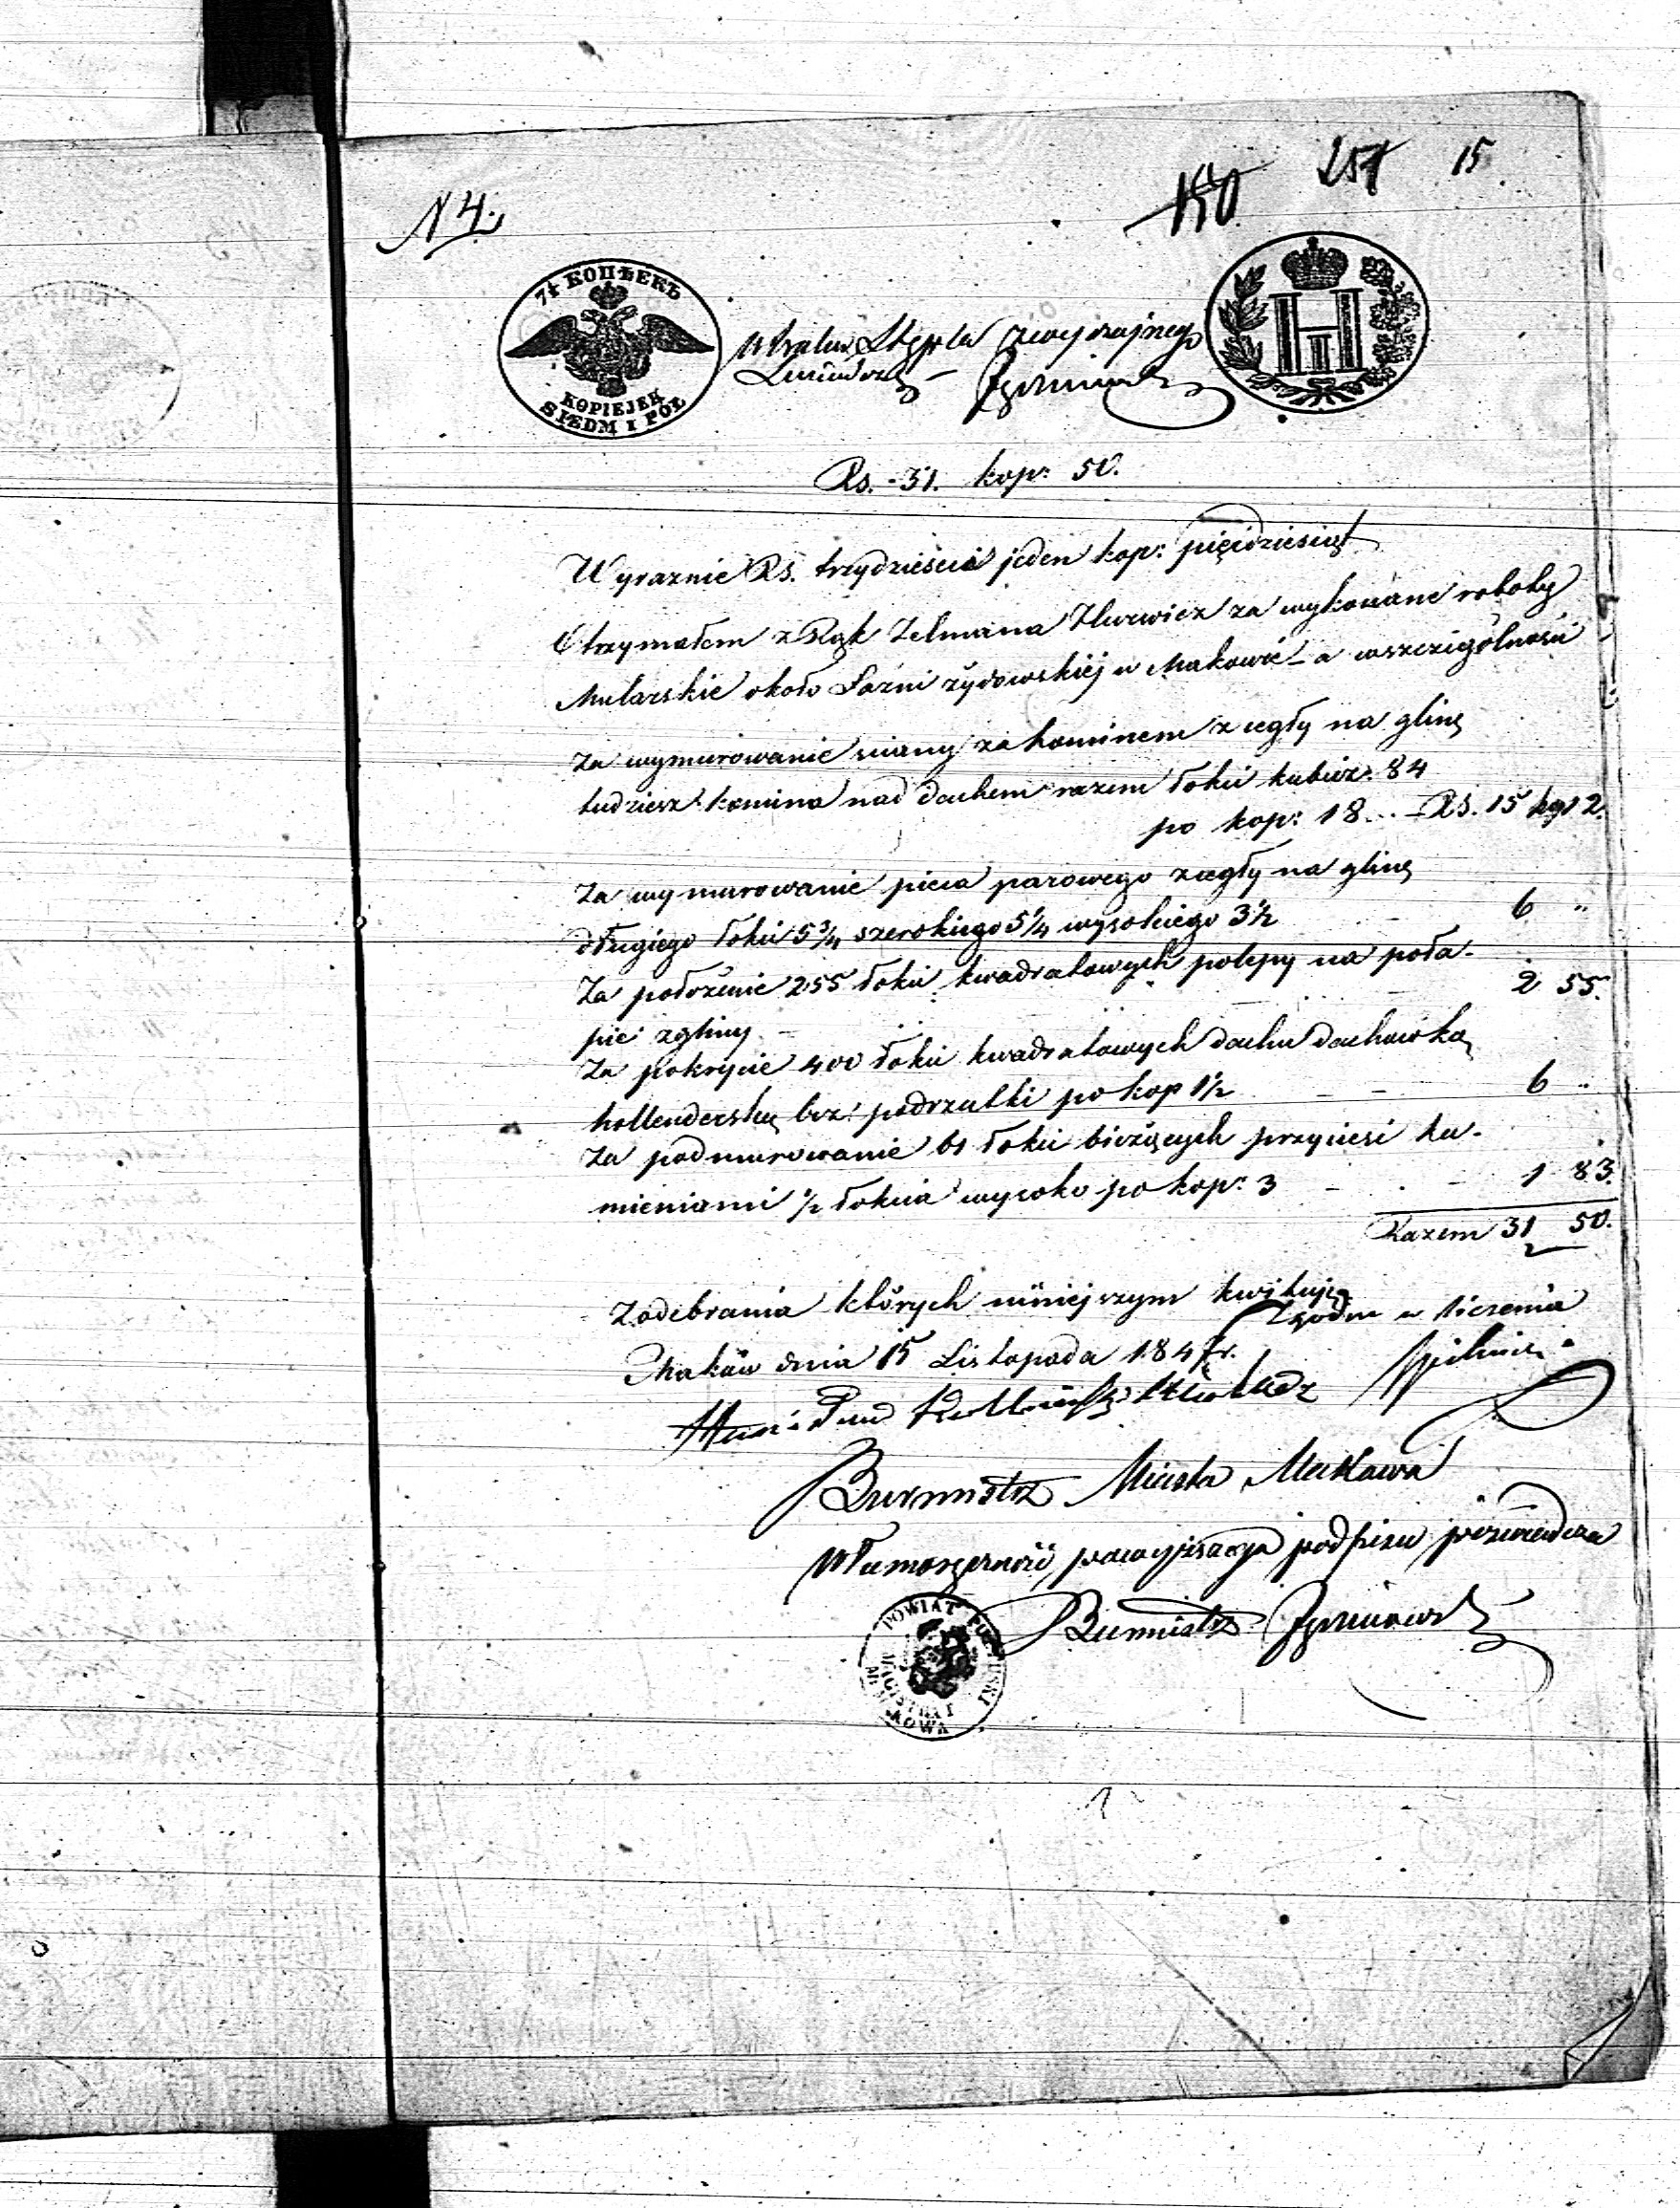 N 4.
257 15
7½ КОПѢЕКЪ
KOPIEJEK
SIEDM I PÓŁ
W braku Stępla zwyczajnego
Rs. 31. kop: 50.
Wyraznie Rs. trzydzieścia jeden kop: pięćdziesiąt
Otrzymałem z Rąk Zelmana Hurwicz za wykonane roboty
Mularskie około Łaźni żydowskiéj w Makowie - a wszczególności
Za wymurowanie sciany za kominem z cegły na glinę
tudziesz komina nad dachem razem łokci kubicz: 84
po kop: 18 . . - Rs. 15 kop 12.
Za wymurowanie pieca parowego z cegły na glinę
długiego łokci 5¾ szerokiego 5¼ wysokiego 3½ - 6 "
Za położenie 255 łokci kwadratowych polepy na poła-
pie z gliny - 2 55.
Za pokrycie 400 łokci kwadratowych dachu dachówką
hollenderską bez podrzutki po kop 1½ - - 6 "
Za podmurowanie 61 łokci bieżących przyciesi ka-
mieniami ½ łokcia wysoko po kop: 3 - . - 1 83.
Razem 31 50.
Z odebrania których niniejszym kwituję
Zgodne w liczenia
Maków dnia 15 Listopada 1847 r.
Burmistrz Miasta Makowa
Własnoręczność powyższego podpisu poświadcza
Burmistrz
POWIAT PUŁTUSKI
MAGISTRAT
M. MAKOWA